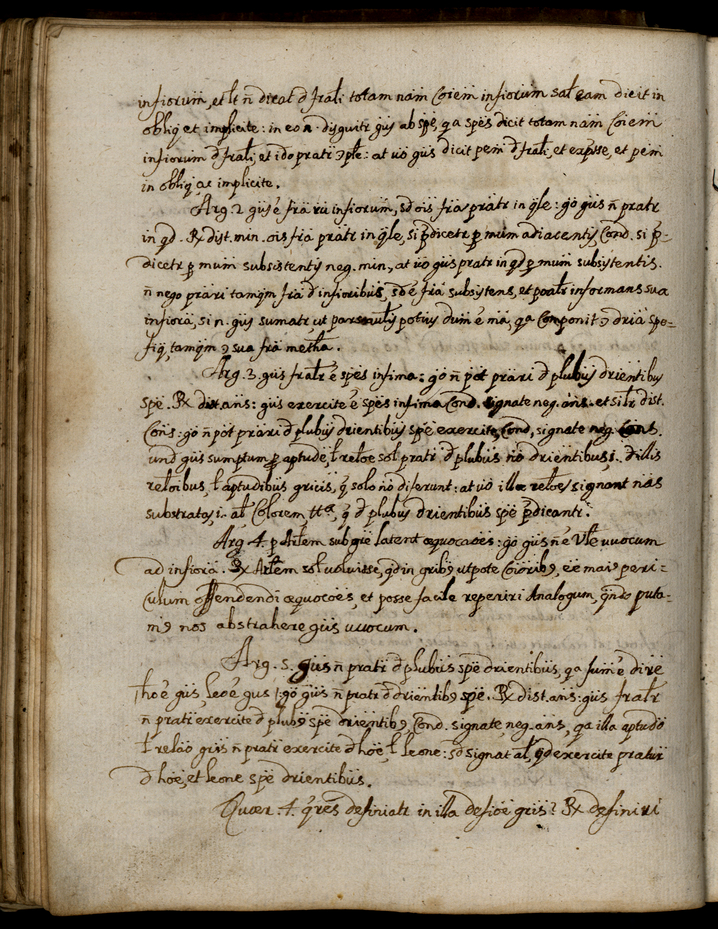 inferiorum, et lt n̄ dicat d frali totam nam Coiem inferiorum sal eam dicit in
obliq et implicite: in eo n. disguitr gus ab spe, qa spes dicit totam nam Coiem
inferiorum d frali, et ido pratr ple: at uo gus dicit pem d frali, et expsse, et pem
in obliq, ac implicite.
Arg. 2. gus é fra ru infiorum, sd ois fra pratr in qle: go gus n̄ pratr
in qd. Rx dist. min. ois fra pratr in qle, si pdicetr p mum adiacentis, Cond. si p=
dicetr p mum subsistentis neg. min., at uo gus pratr in qd p mum subsistentis.
n̄ nego prari tamqm fra d infioribus, sd é fra subsistens, et poatr informans sua
infiora, si n. gus sumatr ut pars potius dum é ma, qa Componit dria spe=
fiq, tamqm sua fra metha.
Arg. 3. gus fralr é spes infima: go n̄ pot prari d plubus drientibus
spe. Rx dist. ans: gus exercite é spes infima Cond. signate neg. ans. et silr dist.
Cons: go n̄ pot prari d plubus drientibus spe exercite, Cond, signate neg. Cons.
und gus sumptum p aptude, l reloe sol pratr d plubus no drientibus, i. d illis
reloibus, l aptudibus gricis, q solo no diferunt: at uo illae reloes signant nas
substratas, i. al Colorem, tta, q d plubus drientibus spe pdicantr.
Arg. 4. p Artlem sub gre latent aequocaoes: go gus n̄ é Vle uuocum
ad infiora. Rx Artlem sol uoluisse, qd in gribus utpote Coioribus, ee maius peri=
culum offendendi aequocoes, et posse facile reperiri Analogum, qndo puta=
mus nos abstrahere gus uuocum.
Arg. 5. gus n̄ pratr d plubus spe drientibus, qa fum é dire
hó é gus, leo é gus: go gus n̄ pratr d drientibus spe. Rx dist. ans: gus fralr
n̄ pratr exercite d plubus spe drientibus Cond. signate, neg. ans, qa illa aptudo
l relao gris n̄ pratr exercite d hoe, l leone: sd signat al, qd exercite pratur
d hoe, et leone spe drientibus.
Quaer. 4. q res definiatr in illa defioe gris? Rx definiri